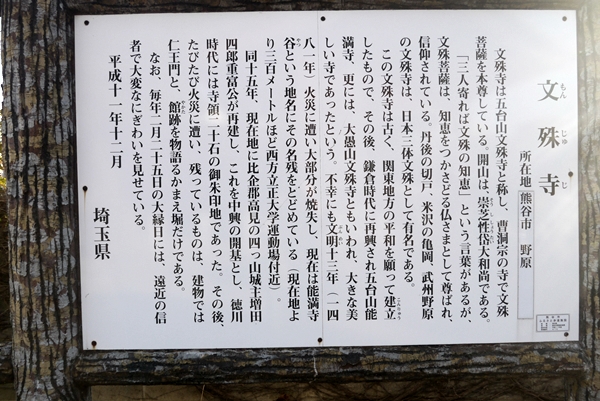 文殊寺
もんじゅじ
所在地 熊谷市 野原
文殊寺は五台山文殊寺と称し、曹洞宗の寺で文殊
菩薩を本尊としている。開山は、崇芝性岱大和尚である。
「三人寄れば文殊の知恵」という言葉があるが、
文殊菩薩は、知恵をつかさどる仏さまとして尊ばれ、
信仰されている。丹後の切戸、米沢の亀岡、武州野原
の文殊寺は、日本三体文殊として有名である。
この文殊寺は古く、関東地方の平和を願って建立
したもので、その後、鎌倉時代に再興され五台山能
満寺、更には、大愚山文殊寺ともいわれ、大きな美
しい寺であったという。不幸にも文明十三年（一四
八一年）火災に遭い大部分が焼失し、現在は能満寺
谷という地名にその名残をとどめている（現在地よ
り三百メートルほど西方立正大学運動場付近）。
同十五年、現在地に比企郡高見の四つ山城主増田
四郎重富公が再建し、これを中興の開基とし、徳川
時代には寺領二十石の御朱印地であった。その後、
たびたび火災に遭い、残っているものは、建物では
仁王門と、館跡を物語るかまえ堀だけである。
なお、毎年二月二十五日の大縁日には、遠近の信
者で大変なにぎわいを見せている。
平成十一年十二月
埼玉県